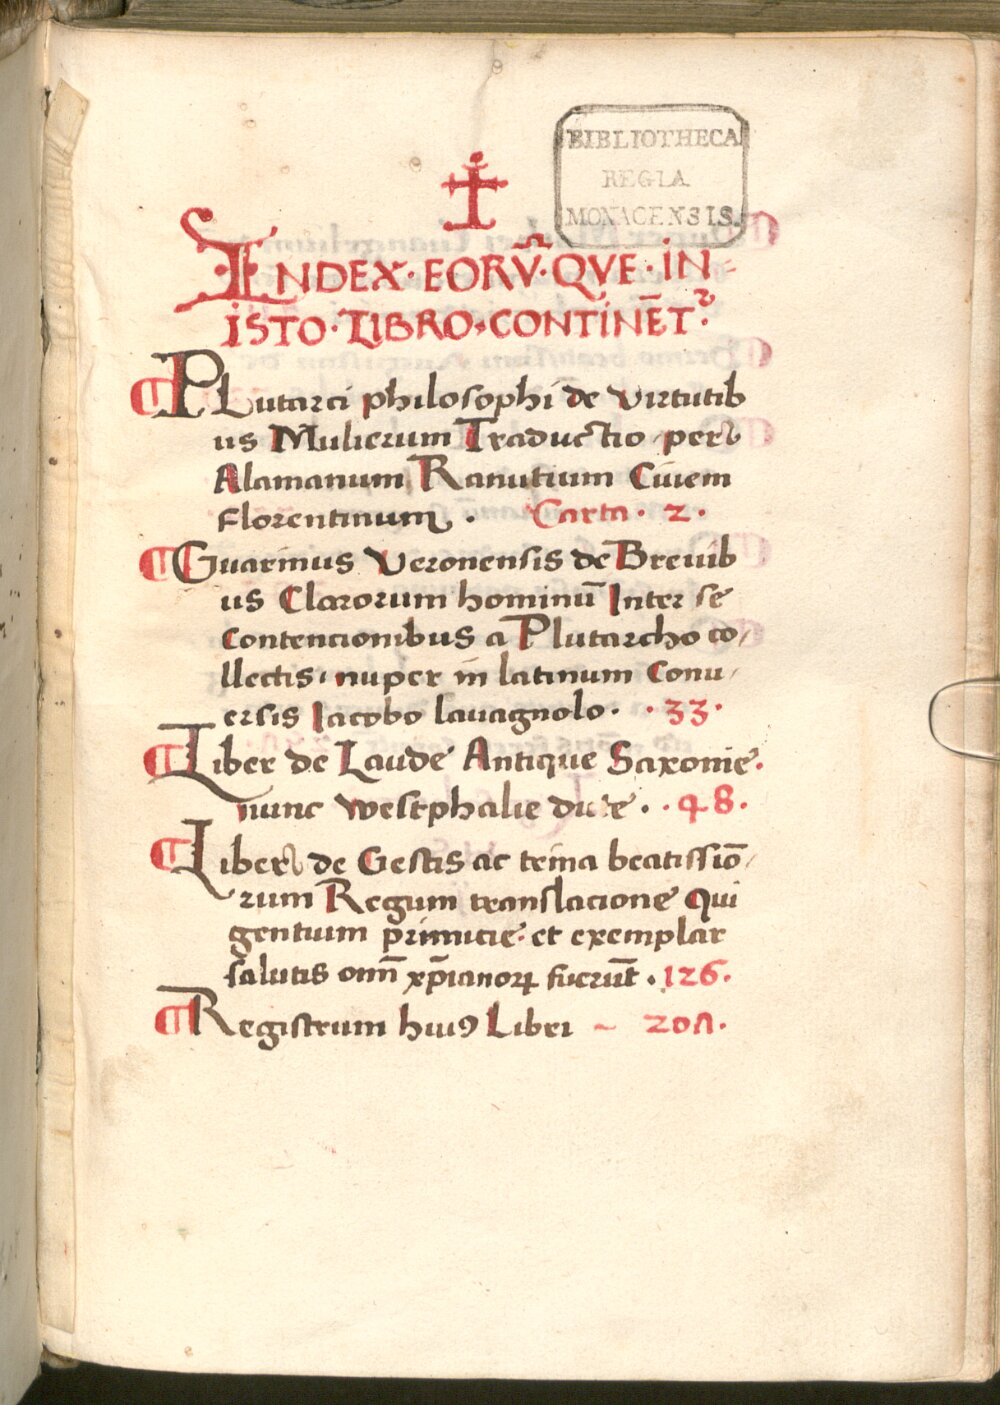 BIBLIOTHECA
REGIA
MONACENSIS.
INDEX·EORV̄·QVE·IN-
ISTO·LIBRO·CONTINĒT᷑
¶ PLutarci philosophi de virtutib
us Mulierum Traductio per
Alamanum Ranutium Civem
florentinum. Carta·2·
¶ Guarinus Veronensis de Brevib
us Clarorum hominū Inter se
Contencionibus a Plutarcho co/
llectis· nuper in latinum Conu/
ersis Iacobo lavagnolo· ·33·
¶ Liber de Laude Antique Saxonie·
nunc westphalie dicte· ·48·
¶ Liber de Gestis ac trina beatissiō/
rum Regum translacione Qui
gentium primicie· et exemplar
salutis om̄ xp̄ianoꝝ fuerūt·126·
¶ Registrum huiꝰ Libri ~ 20Λ·